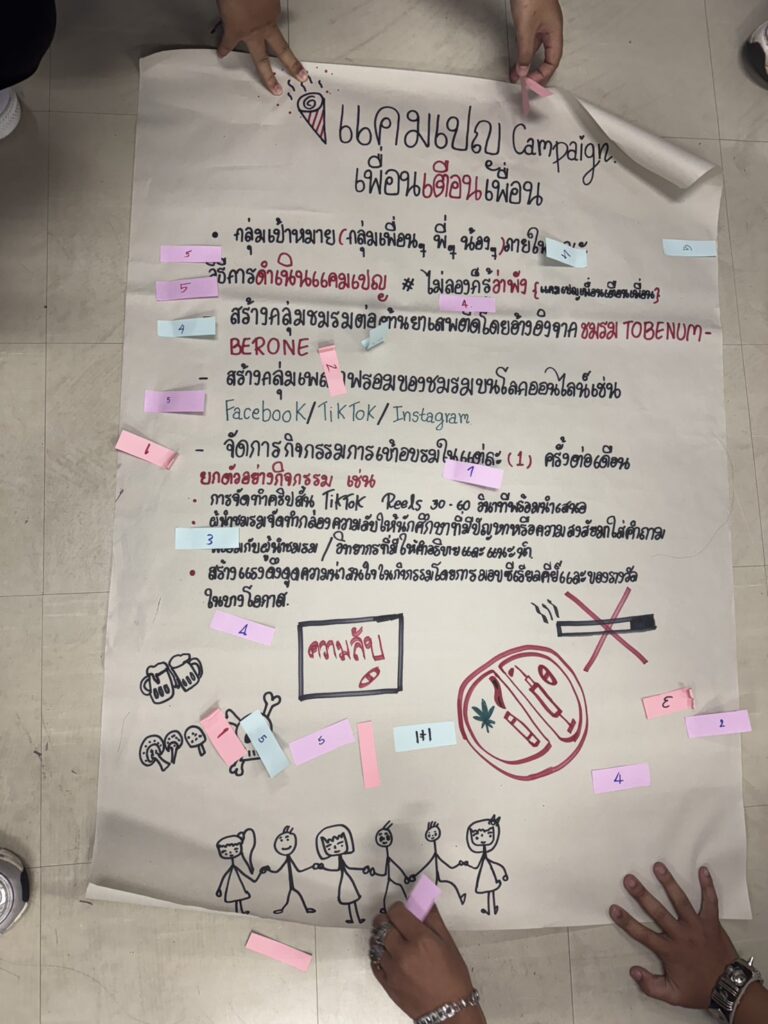 แคมเปญ Campaign.
เพื่อนเตือนเพื่อน
• กลุ่มเป้าหมาย (กลุ่มเพื่อนๆ พี่ๆ น้องๆ) ภายใน
วิธีการดำเนินแคมเปญ # ไม่ลองก็รู้ว่าพัง {แคมเปญเพื่อนเตือนเพื่อน}
- สร้างกลุ่มชมรมต่อต้านยาเสพติดโดยอ้างอิงจาก ชมรม TOBENUM-
BERONE
- สร้างกลุ่ม ของชมรมบนโลกออนไลน์เช่น
Facebook/TikTok/Instagram
- จัดการกิจกรรมการเข้าอบรมในแต่ละ (1) ครั้งต่อเดือน
ยกตัวอย่างกิจกรรม เช่น
• การจัดทำคริปสั้น TikTok Reels 30-60 วินาทีพร้อมนำเสนอ
• ผู้นำชมรมจัดทำกล่องความลับให้นักศึกษาที่มีปัญหาหรือความสงสัยมาใส่คำถาม
กับผู้นำชมรม / วิทยากรที่มีให้คำอธิบายและแนะนำ
• สร้างแรงดึงดูดความน่าสนใจในกิจกรรมโดยการมอบ และของรางวัล
ในบางโอกาส.
ความลับ
5
5
4
4
2
5
1
1
3
4
1
5
5
1+1
3
2
4